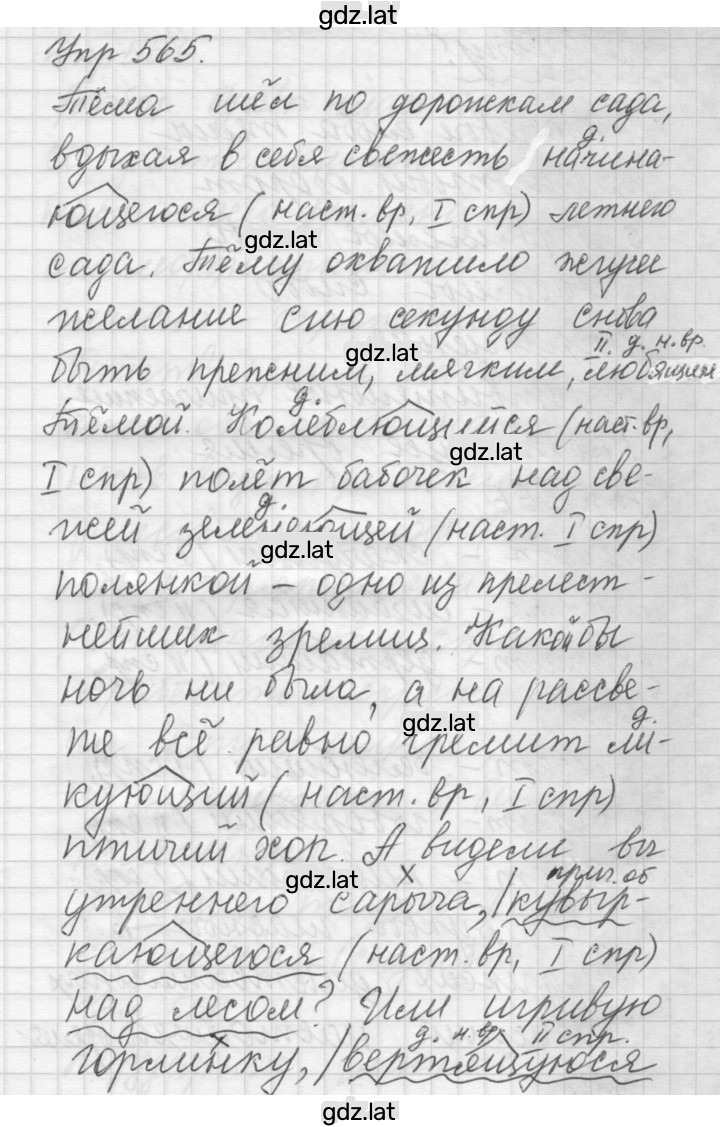 gdz.lat
Упр 565.
Тёма шёл по дорожкам сада,
вдыхая в себя свежесть начина-
д.
ющегося (наст. вр, I спр) летнего
gdz.lat
сада. Тёму охватило жгучее
желание сию секунду снова
II. д. н. вр.
быть прежним, мягким, любящим
gdz.lat
д.
Тёмой. Колеблющийся (наст. вр,
gdz.lat
I спр) полёт бабочек над све-
д.
жей зеленеющей (наст. I спр)
gdz.lat
полянкой – одно из прелест-
нейших зрелищ. Какой бы
ночь ни была, а на рассве-
gdz.lat
д.
те всё равно гремит ли-
кующий (наст. вр, I спр)
птичий хор. А видели вы
gdz.lat
х прич. об
утреннего сарыча, /кувыр-
кающегося (наст. вр, I спр)
над лесом? Или игривую
х д. н. вр. II спр.
горлинку, /вертящуюся
gdz.lat